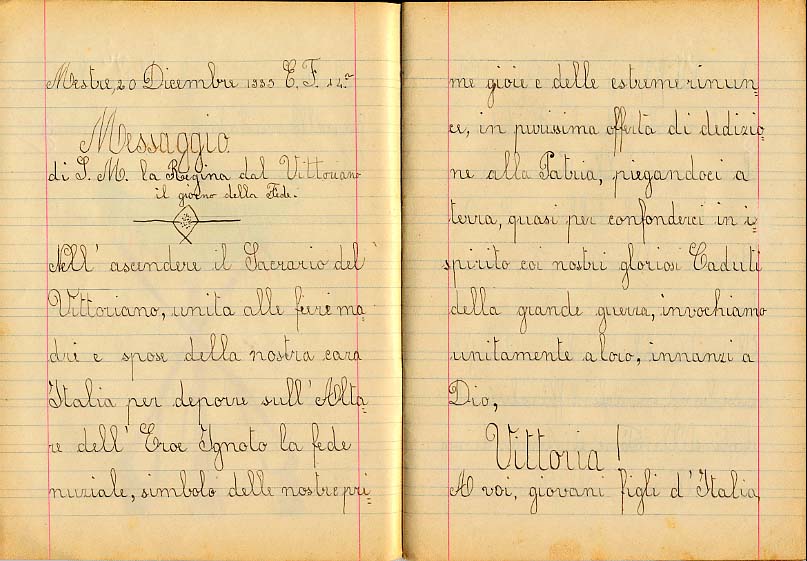 Mestre, 20 Dicembre 1935 E. F. 14.°
Messaggio
di S. M. la Regina dal Vittoriano
il giorno della Fede.
Nell' ascendere il Sacrario del
Vittoriano, unita alle fiere ma=
dri e spose della nostra cara
Italia per deporre sull' Alta=
re dell' Eroe Ignoto la fede
nuziale, simbolo delle nostre pri=
me gioie e delle estreme rinun=
ce, in purissima offerta di dedizio=
ne alla Patria, piegandoci a
terra, quasi per confonderci in i=
spirito coi nostri gloriosi Caduti
della grande guerra, invochiamo
unitamente a loro, innanzi a
Dio,
Vittoria!
A voi, giovani figli d' Italia,